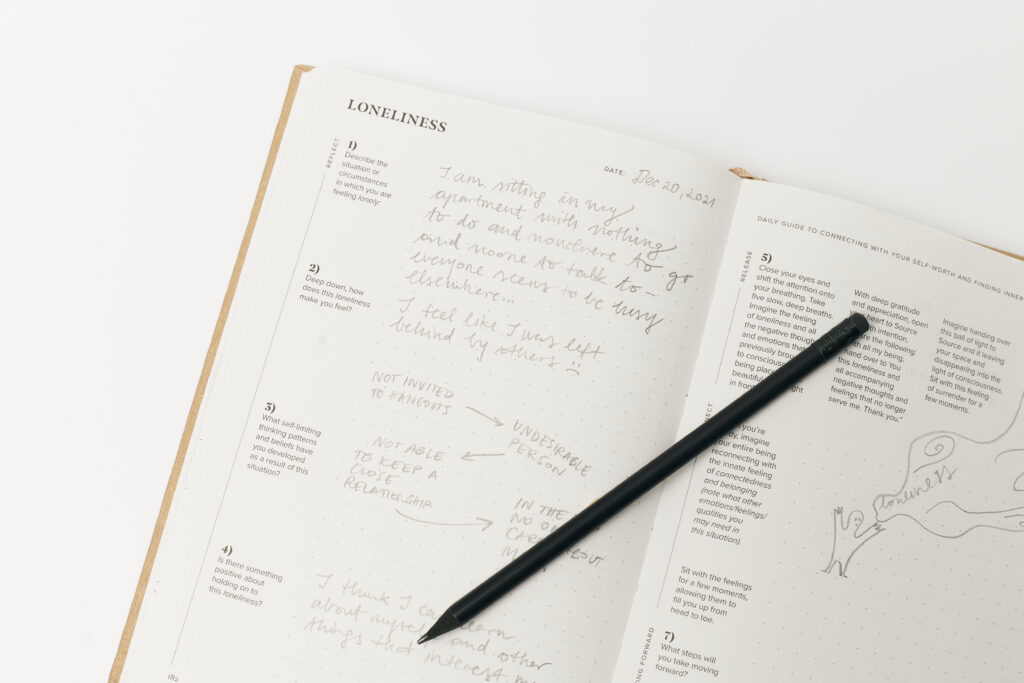 LONELINESS
REFLECT
1)
Describe the
situation or
circumstances
in which you are
feeling lonely:
DATE: Dec 20, 2021
I am sitting in my
apartment with nothing
to do and nowhere to go
and noone to talk to –
everyone seems to be busy
elsewhere...
2)
Deep down, how
does this loneliness
make you feel?
I feel like I was left
behind by others!!
3)
What self-limiting
thinking patterns
and beliefs have
you developed
as a result of this
situation?
NOT INVITED
TO HANGOUTS
UNDESIRABLE
PERSON
NOT ABLE
TO KEEP A
CLOSE
RELATIONSHIP
IN THE
NO
ABOUT
4)
Is there something
positive about
holding on to
this loneliness?
I think I can learn
about myself and other
things that interest
183
DAILY GUIDE TO CONNECTING WITH YOUR SELF-WORTH AND FINDING INNER
RELEASE
5)
Close your eyes and
shift the attention onto
your breathing. Take
five slow, deep breaths.
Imagine the feeling
of loneliness and all
the negative
and emotions
previously
to
being
beautiful
in front
With deep gratitude
and appreciation, open
heart to Source
intention,
are the following:
with all my being,
hand over to You
this loneliness and
all accompanying
negative thoughts and
feelings that no longer
serve me. Thank you."
Imagine handing over
this ball of light to
Source and it leaving
your space and
disappearing into the
light of consciousness.
Sit with this feeling
of surrender for a
few moments.
you're
imagine
your entire being
reconnecting with
the innate feeling
of connectedness
and belonging
(note what other
emotions/feelings/
qualities you
may need in
this situation).
loneliness
Sit with the feelings
for a few moments,
allowing them to
fill you up from
head to toe.
FORWARD
7)
What steps will
you take moving
forward?